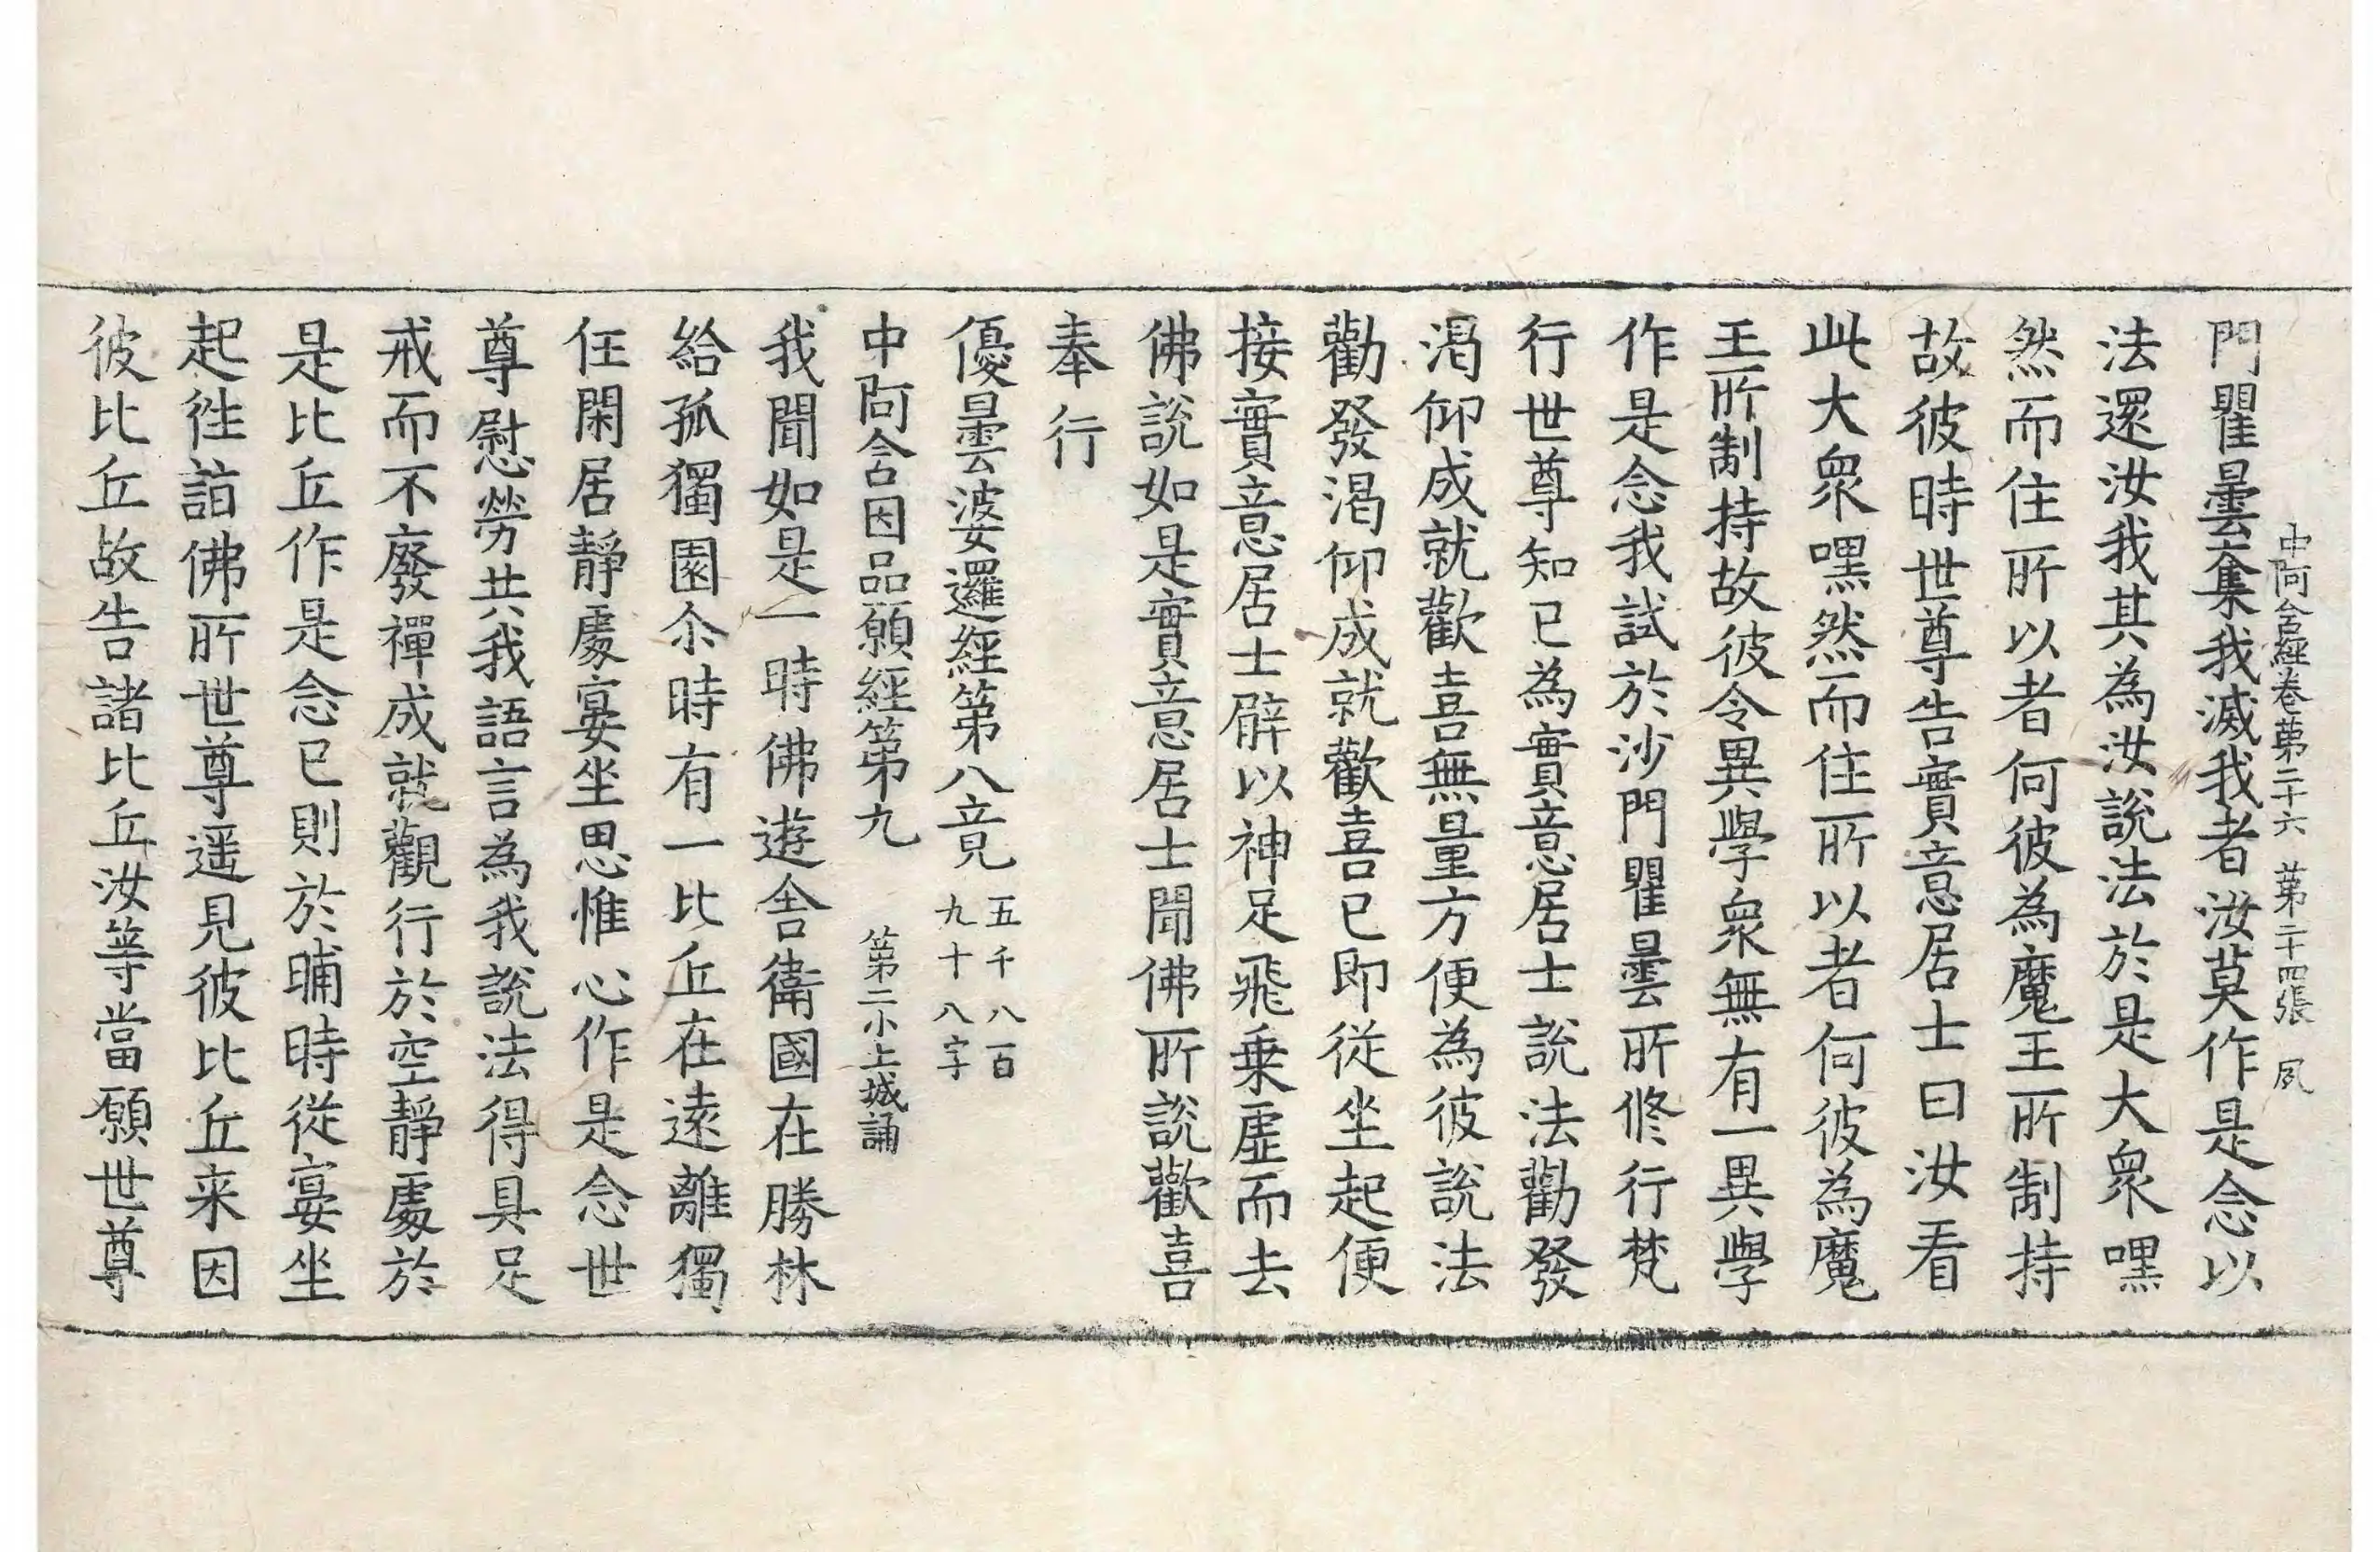 中阿含經卷第二十六 第二十四張 夙
門瞿曇奪我滅我者汝莫作是念以
法還汝我其為汝說法於是大衆嘿
然而住所以者何彼為魔王所制持
故彼時世尊告實意居士曰汝看
此大衆嘿然而住所以者何彼為魔
王所制持故彼令異學衆無有一異學
作是念我試於沙門瞿曇所修行梵
行世尊知已為實意居士說法勸發
渴仰成就歡喜無量方便為彼說法
勸發渴仰成就歡喜已即從坐起便
接實意居士臂以神足飛乗虛而去
佛說如是實意居士聞佛所說歡喜
奉行
優曇婆邏經第八竟 五千八百
九十八字
中阿含因品願經第九 第二小土城誦
我聞如是一時佛遊舍衛國在勝林
給孤獨園尒時有一比丘在遠離獨
住閑居靜處宴坐思惟心作是念世
尊慰勞共我語言為我說法得具足
戒而不廢禪成就觀行於空靜處於
是比丘作是念已則於晡時從宴坐
起往詣佛所世尊遥見彼比丘来因
彼比丘故告諸比丘汝等當願世尊